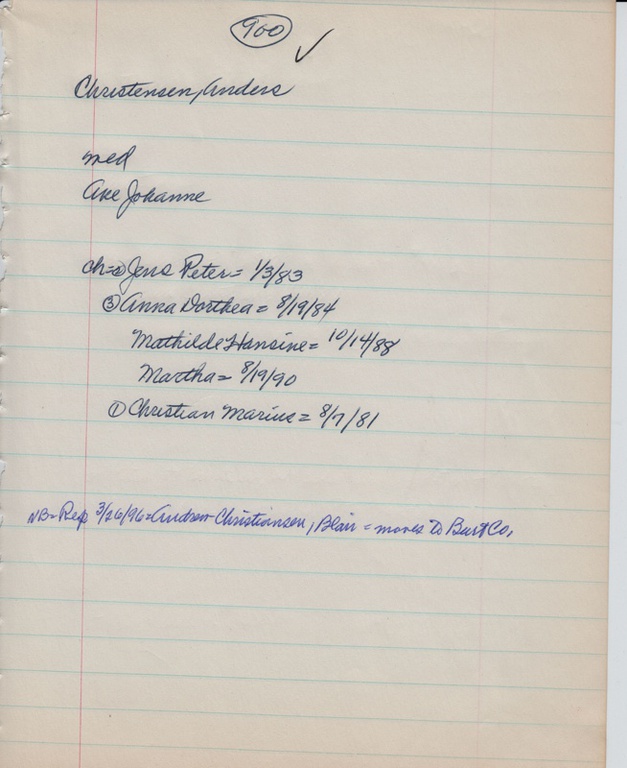 900 ✓
Christensen, Anders
med
Ane Johanne
ch=② Jens Peter= 1/3/83
③ Anna Dorthea = 8/19/84
Mathilde Hansine= 10/14/88
Martha= 8/19/90
① Christian Marius = 8/7/81
NB=Rep 3/26/96=Andrew Christiansen, Blair = moves to Burt Co.